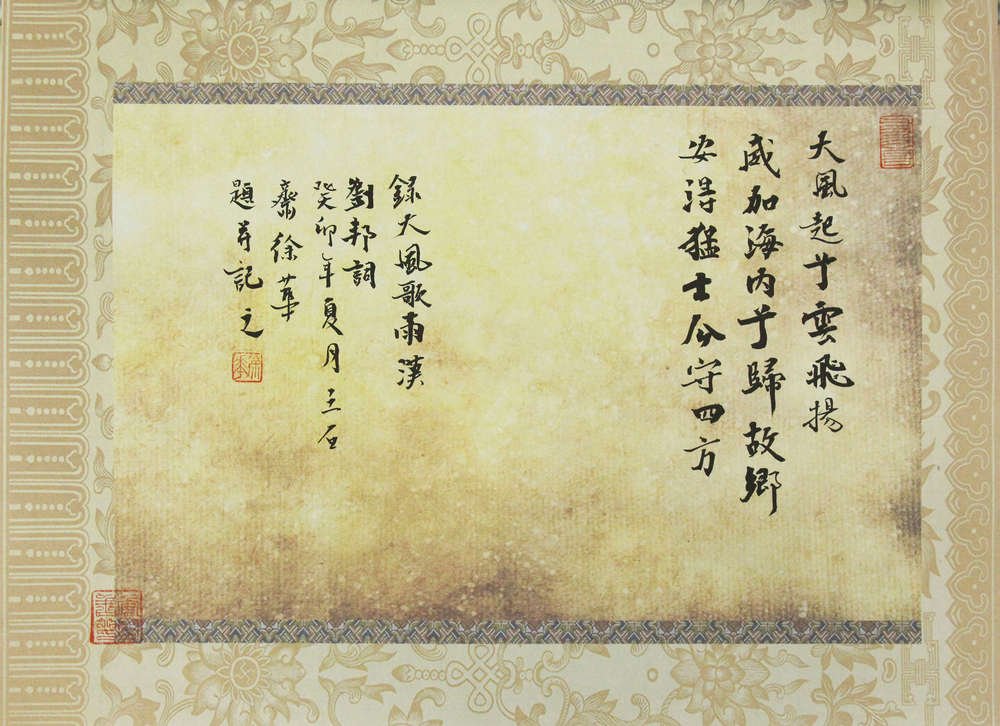 大風起兮雲飛揚
威加海内兮歸故鄉
安得猛士兮守四方
錄大風歌兩漢
劉邦詞
癸卯年夏月三石
齋徐華
題并記之